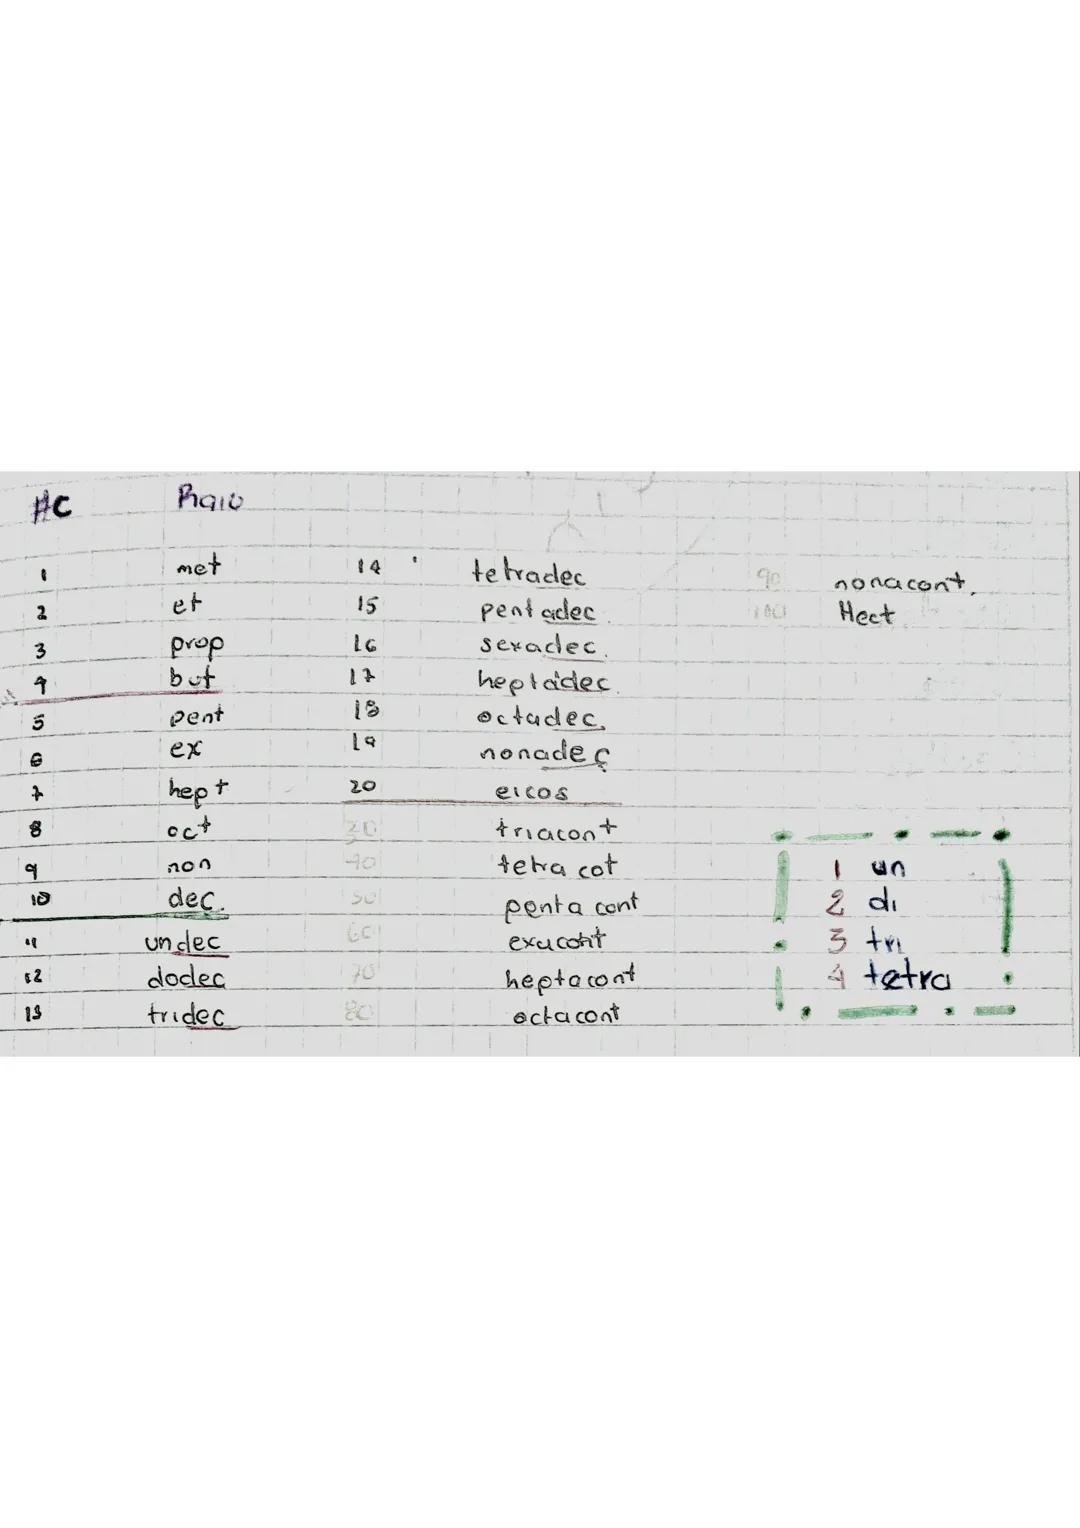 #C Raiz
1 met
2 et
3 prop
4 but
5 pent
6 ex
7 hept
8 oct
9 non
10 dec.
11 undec
12 dodec
13 tridec
14 tetradec
15 pentadec.
16 sexadec.
17 heptadec.
18 octadec.
19 nonadec
20 eicos
30 triacont
40 tetracot
50 pentacont
60 exacont
70 heptacont
80 octacont
90 nonacont.
100 Hect
1 un
2 di
3 tri
4 tetra